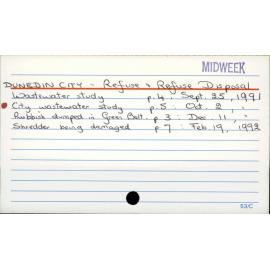 MIDWEEK
DUNEDIN CITY - Refuse & Refuse Disposal
Wastewater study p.4 : Sept. 25, 1991
City wastewater study p.5 : Oct. 2, "
Rubbish dumped in Green Belt p 3 : Dec. 11, "
Shredder being damaged p 7 : Feb 19, 1992
53/C